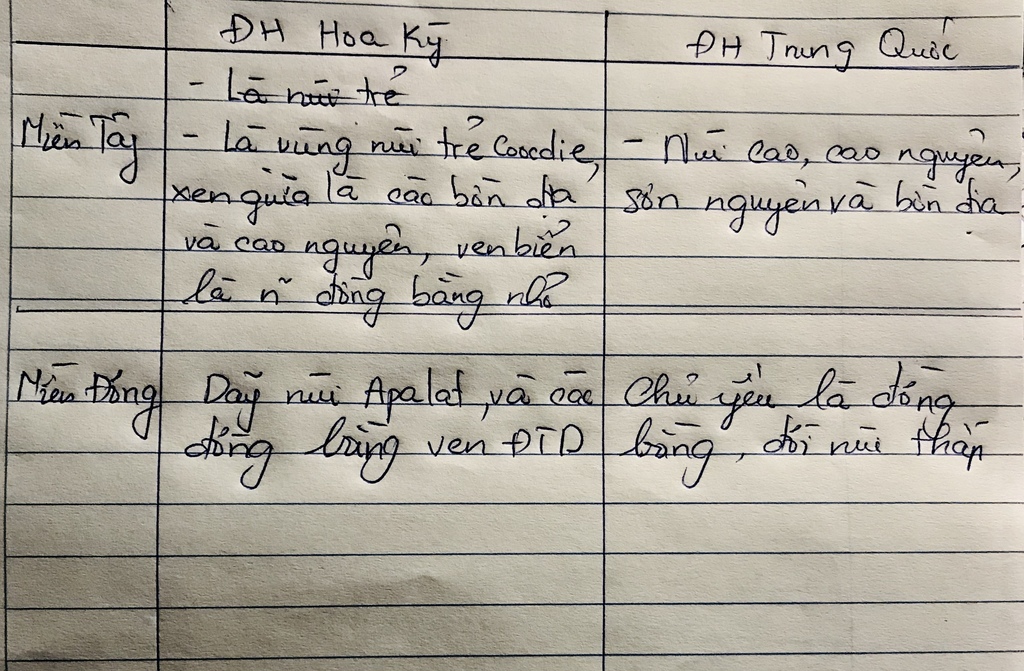 ĐH Hoa Kỳ
ĐH Trung Quốc
- Là núi trẻ
Miền Tây
- Là vùng núi trẻ Coocdie,
xen giữa là các bồn địa
và cao nguyên, ven biển
là n~ đồng bằng nhỏ
- Núi cao, cao nguyên,
sơn nguyên và bồn địa
Miền Đông
Dãy núi Apalat, và các
đồng bằng ven ĐTD
Chủ yếu là đồng
bằng, đồi núi thấp